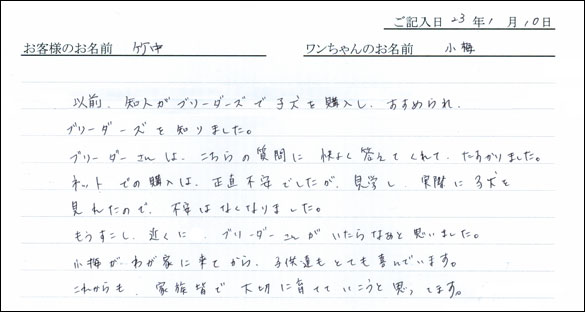 ご記入日 23年1月10日
お客様のお名前 竹中 ワンちゃんのお名前 小梅
以前、知人がブリーダーズで子犬を購入し、おすすめられ、
ブリーダーズを知りました。
ブリーダーさんは、こちらの質問に快よく答えてくれて、たすかりました。
ネットでの購入は、正直不安でしたが、見学し、実際に子犬を
見れたので、不安はなくなりました。
もうすこし、近くに、ブリーダーさんがいたらなぁと思いました。
小梅が、わが家に来てから、子供達もとても喜んでいます。
これからも、家族皆で大切に育てていこうと思ってます。